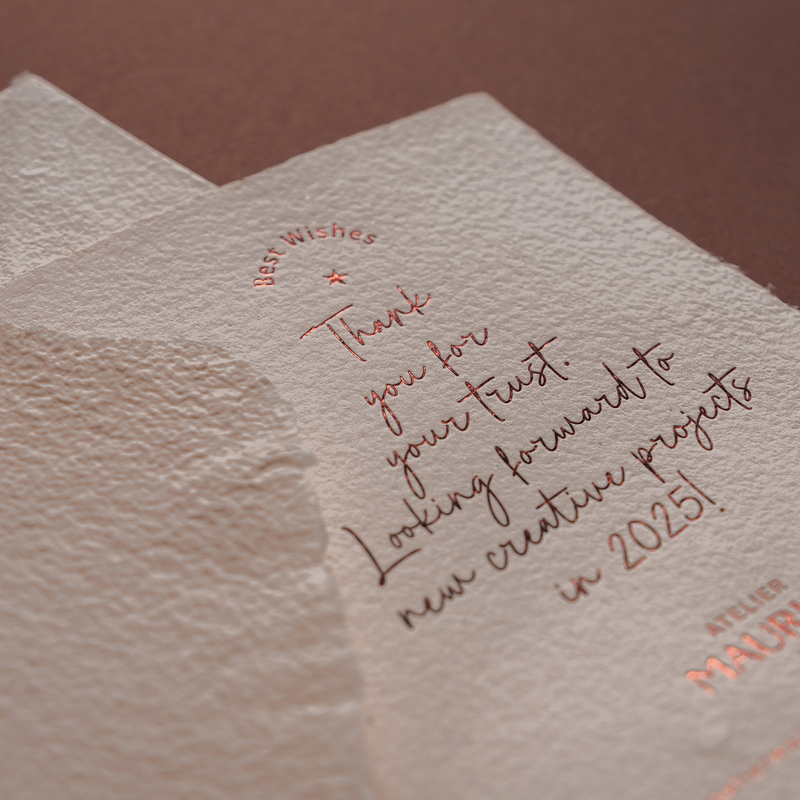 Best Wishes
Thank
you for
your trust.
Looking forward to
new creative projects
in 2025!
ATELIER